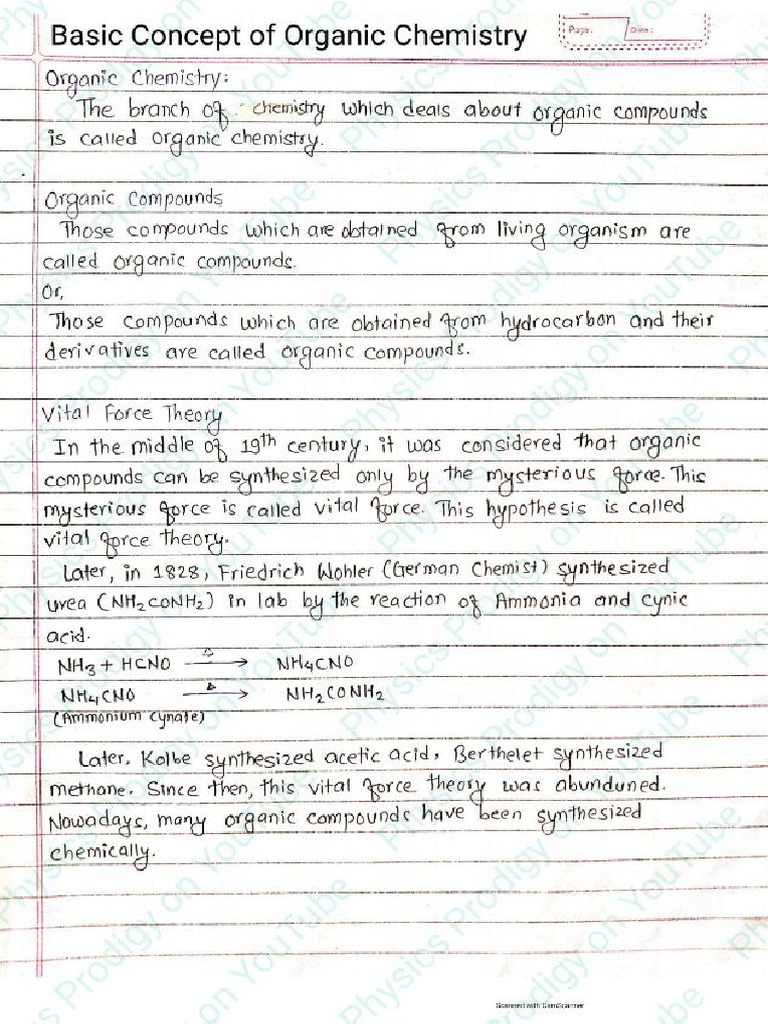 Basic Concept of Organic Chemistry
Page: Date:
Organic Chemistry:
The branch of chemistry which deals about organic compounds
is called organic chemistry.
Organic Compounds
Those compounds which are obtained from living organism are
called organic compounds.
Or,
Those compounds which are obtained from hydrocarbon and their
derivatives are called organic compounds.
Vital Force Theory
In the middle of 19th century, it was considered that organic
compounds can be synthesized only by the mysterious force. This
mysterious force is called vital force. This hypothesis is called
vital force theory.
Later, in 1828, Friedrich Wohler (German Chemist) synthesized
urea (NH2CONH2) in lab by the reaction of Ammonia and cynic
acid.
NH3 + HCNO Δ→ NH4CNO
NH4CNO Δ→ NH2CONH2
(Ammonium Cynate)
Later, Kolbe synthesized acetic acid, Berthelet synthesized
methane. Since then, this vital force theory was abunduned.
Nowadays, many organic compounds have been synthesized
chemically.
Physics Prodigy on YouTube
Scanned with CamScanner